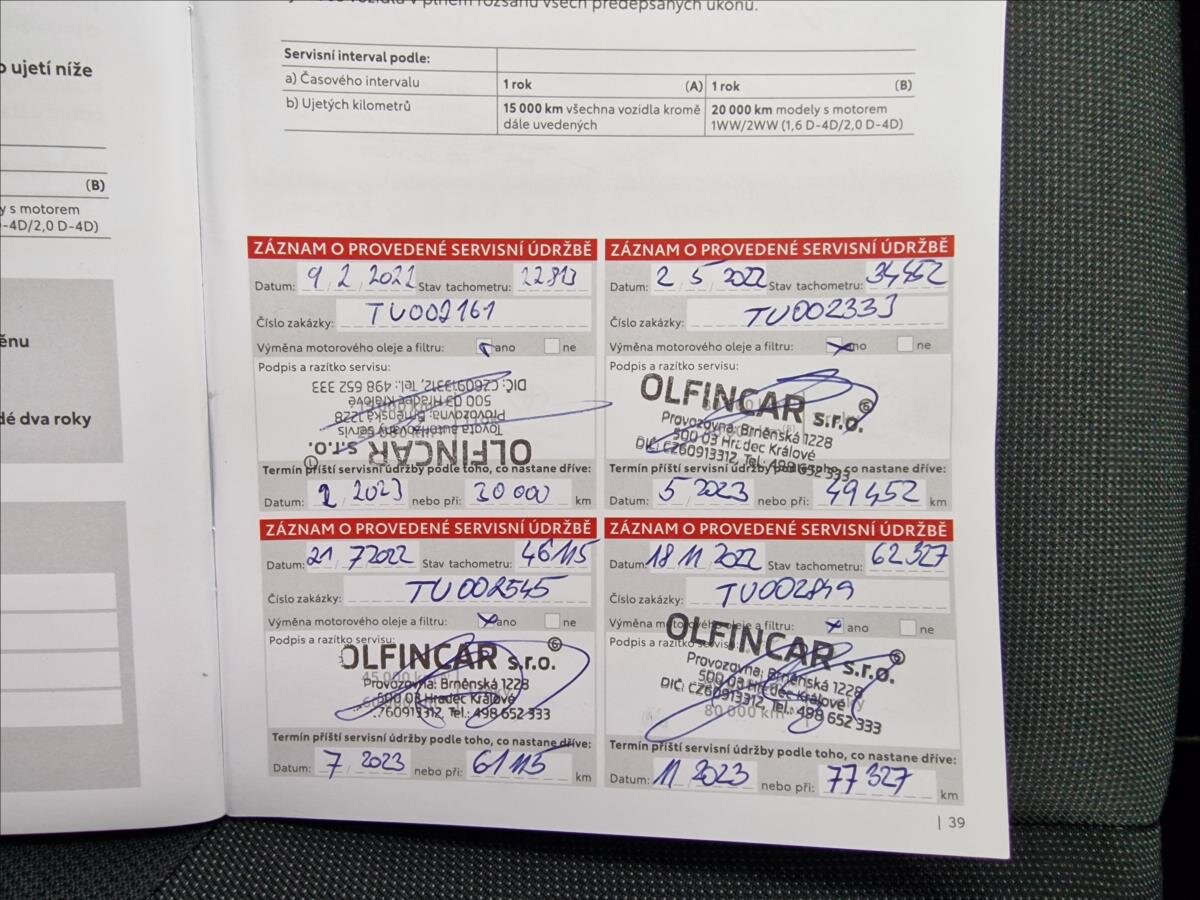 o ujetí níže
(B)
y s motorem
-4D/2,0 D-4D)
ěnu
dé dva roky
vozidla v plném rozsahu všech předepsaných úkonů.
Servisní interval podle:
a) Časového intervalu 1 rok (A) 1 rok (B)
b) Ujetých kilometrů 15 000 km všechna vozidla kromě 20 000 km modely s motorem
dále uvedených 1WW/2WW (1,6 D-4D/2,0 D-4D)
ZÁZNAM O PROVEDENÉ SERVISNÍ ÚDRŽBĚ
Datum: 9 2 2022 Stav tachometru: 22813
Číslo zakázky: TU002161
Výměna motorového oleje a filtru: ano ne
Podpis a razítko servisu:
OLFINCAR s.r.o.
Toyota autorizovaný servis
Provozovna: Brněnská 1228
500 03 Hradec Králové
DIČ: CZ60913312, Tel.: 498 652 333
Termín příští servisní údržby podle toho, co nastane dříve:
Datum: 2 2023 nebo při: 30 000 km
ZÁZNAM O PROVEDENÉ SERVISNÍ ÚDRŽBĚ
Datum: 2 5 2022 Stav tachometru: 34452
Číslo zakázky: TU002333
Výměna motorového oleje a filtru: ano ne
Podpis a razítko servisu:
OLFINCAR s.r.o. 6
Provozovna: Brněnská 1228
500 03 Hradec Králové
DIČ: CZ60913312, Tel.: 498 652 333
Termín příští servisní údržby podle toho, co nastane dříve:
Datum: 5 2023 nebo při: 49452 km
ZÁZNAM O PROVEDENÉ SERVISNÍ ÚDRŽBĚ
Datum: 21 7 2022 Stav tachometru: 46115
Číslo zakázky: TU002545
Výměna motorového oleje a filtru: ano ne
Podpis a razítko servisu:
OLFINCAR s.r.o. 6
45 000 km
Provozovna: Brněnská 1228
500 03 Hradec Králové
.:Z60913312, Tel.: 498 652 333
Termín příští servisní údržby podle toho, co nastane dříve:
Datum: 7 2023 nebo při: 61115 km
ZÁZNAM O PROVEDENÉ SERVISNÍ ÚDRŽBĚ
Datum: 18 11 2022 Stav tachometru: 62327
Číslo zakázky: TU002849
Výměna motorového oleje a filtru: ano ne
Podpis a razítko servisu:
OLFINCAR s.r.o. 6
Provozovna: Brněnská 1228
500 03 Hradec Králové
DIČ: CZ60913312, Tel.: 498 652 333
80 000 km
Termín příští servisní údržby podle toho, co nastane dříve:
Datum: 11 2023 nebo při: 77327 km
| 39